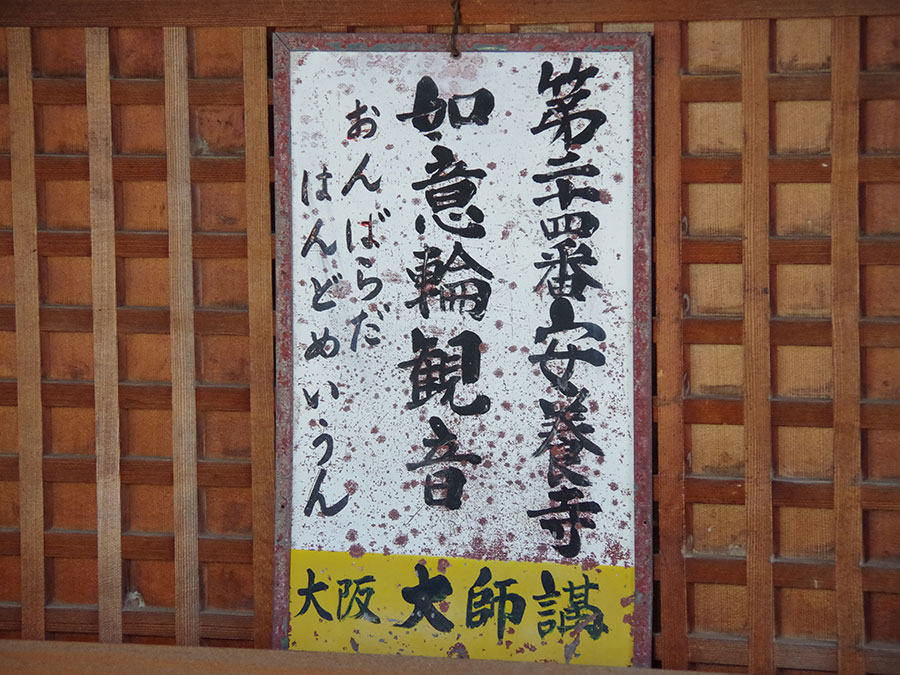 第二十四番安養寺
如意輪観音
おんばらだ
はんどめいうん
大阪大師講